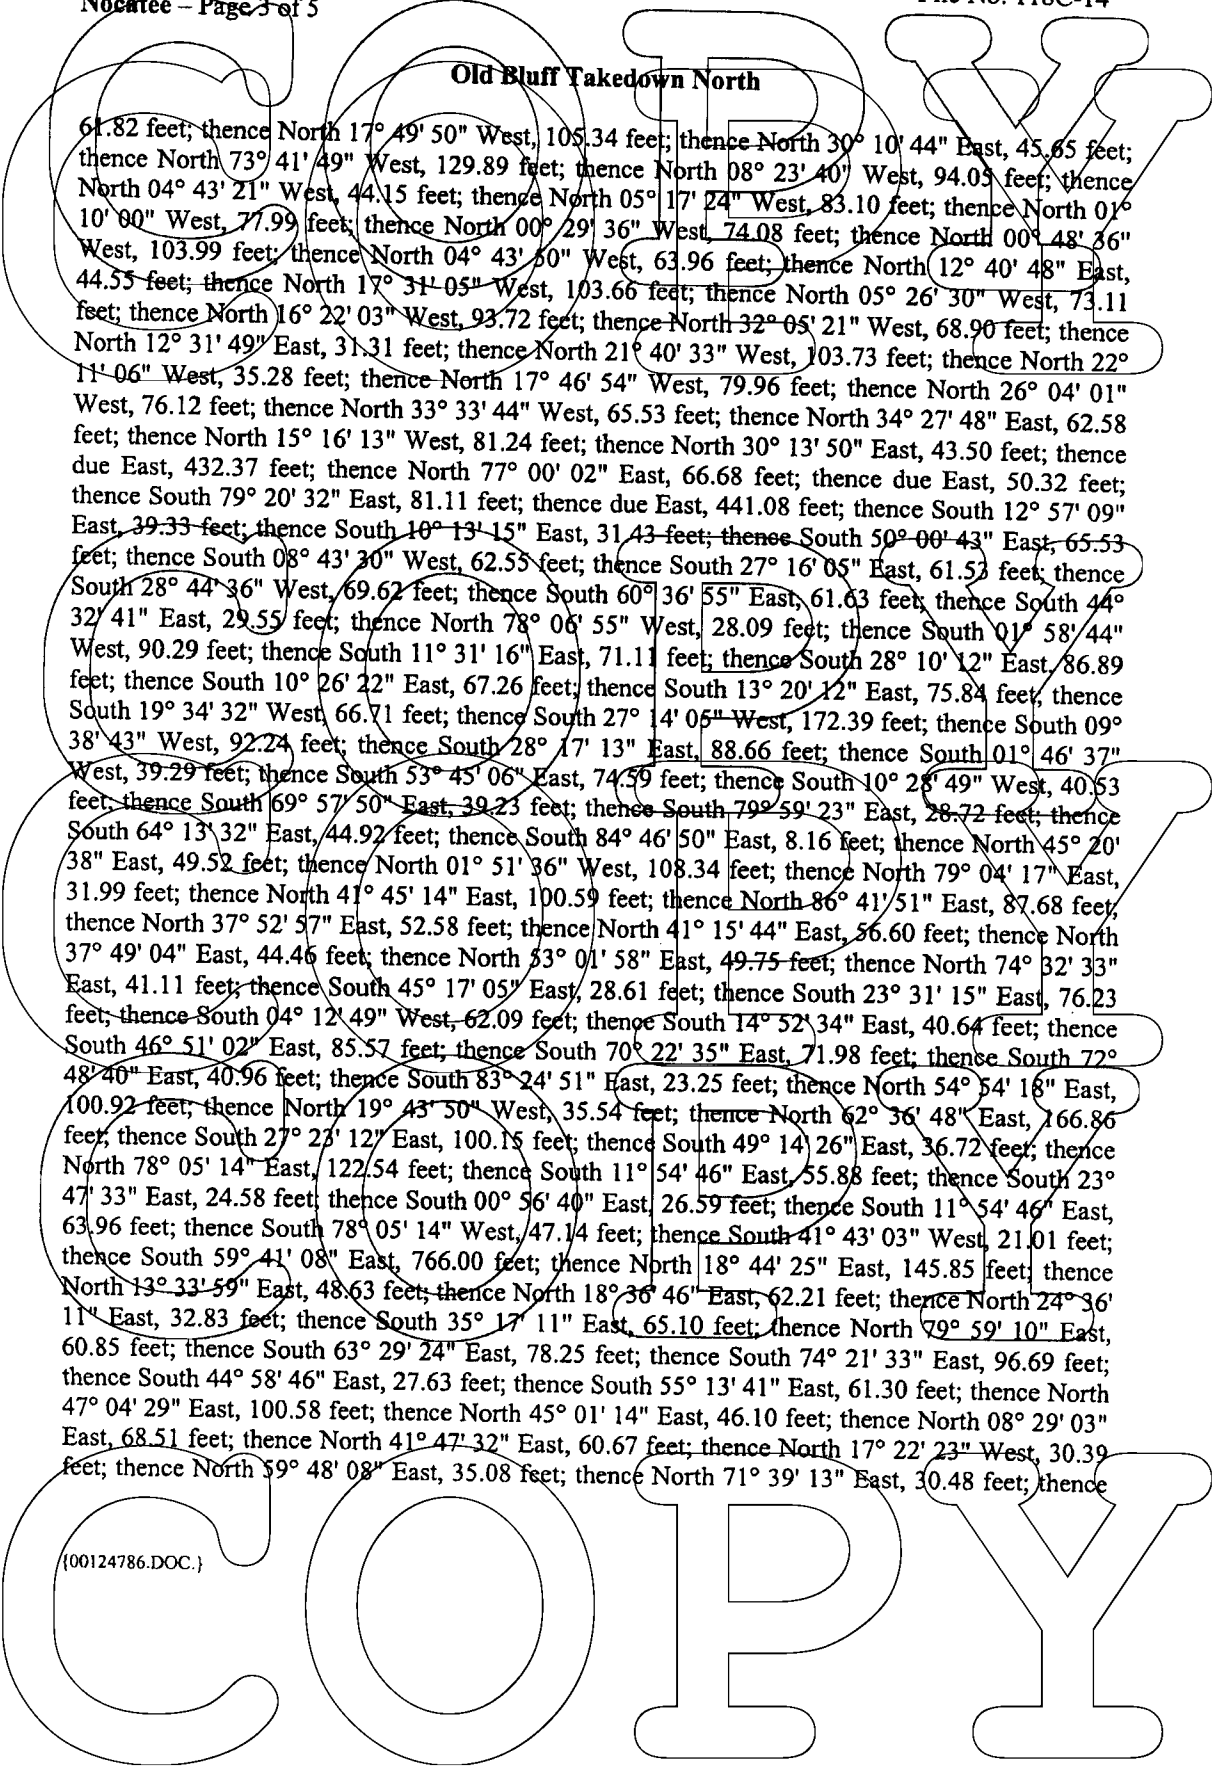 Nocatee – Page 3 of 5
File No. 118C-14
Old Bluff Takedown North
61.82 feet; thence North 17° 49' 50" West, 105.34 feet; thence North 30° 10' 44" East, 45.65 feet;
thence North 73° 41' 49" West, 129.89 feet; thence North 08° 23' 40" West, 94.05 feet; thence
North 04° 43' 21" West, 44.15 feet; thence North 05° 17' 24" West, 83.10 feet; thence North 01°
10' 00" West, 77.99 feet; thence North 00° 29' 36" West, 74.08 feet; thence North 00° 48' 36"
West, 103.99 feet; thence North 04° 43' 50" West, 63.96 feet; thence North 12° 40' 48" East,
44.55 feet; thence North 17° 31' 05" West, 103.66 feet; thence North 05° 26' 30" West, 73.11
feet; thence North 16° 22' 03" West, 93.72 feet; thence North 32° 05' 21" West, 68.90 feet; thence
North 12° 31' 49" East, 31.31 feet; thence North 21° 40' 33" West, 103.73 feet; thence North 22°
11' 06" West, 35.28 feet; thence North 17° 46' 54" West, 79.96 feet; thence North 26° 04' 01"
West, 76.12 feet; thence North 33° 33' 44" West, 65.53 feet; thence North 34° 27' 48" East, 62.58
feet; thence North 15° 16' 13" West, 81.24 feet; thence North 30° 13' 50" East, 43.50 feet; thence
due East, 432.37 feet; thence North 77° 00' 02" East, 66.68 feet; thence due East, 50.32 feet;
thence South 79° 20' 32" East, 81.11 feet; thence due East, 441.08 feet; thence South 12° 57' 09"
East, 39.33 feet; thence South 10° 13' 15" East, 31.43 feet; thence South 50° 00' 43" East, 65.53
feet; thence South 08° 43' 30" West, 62.55 feet; thence South 27° 16' 05" East, 61.53 feet; thence
South 28° 44' 36" West, 69.62 feet; thence South 60° 36' 55" East, 61.63 feet; thence South 44°
32' 41" East, 29.55 feet; thence North 78° 06' 55" West, 28.09 feet; thence South 01° 58' 44"
West, 90.29 feet; thence South 11° 31' 16" East, 71.11 feet; thence South 28° 10' 12" East, 86.89
feet; thence South 10° 26' 22" East, 67.26 feet; thence South 13° 20' 12" East, 75.84 feet; thence
South 19° 34' 32" West, 66.71 feet; thence South 27° 14' 05" West, 172.39 feet; thence South 09°
38' 43" West, 92.24 feet; thence South 28° 17' 13" East, 88.66 feet; thence South 01° 46' 37"
West, 39.29 feet; thence South 53° 45' 06" East, 74.59 feet; thence South 10° 28' 49" West, 40.53
feet; thence South 69° 57' 50" East, 39.23 feet; thence South 79° 59' 23" East, 28.72 feet; thence
South 64° 13' 32" East, 44.92 feet; thence South 84° 46' 50" East, 8.16 feet; thence North 45° 20'
38" East, 49.52 feet; thence North 01° 51' 36" West, 108.34 feet; thence North 79° 04' 17" East,
31.99 feet; thence North 41° 45' 14" East, 100.59 feet; thence North 86° 41' 51" East, 87.68 feet;
thence North 37° 52' 57" East, 52.58 feet; thence North 41° 15' 44" East, 56.60 feet; thence North
37° 49' 04" East, 44.46 feet; thence North 53° 01' 58" East, 49.75 feet; thence North 74° 32' 33"
East, 41.11 feet; thence South 45° 17' 05" East, 28.61 feet; thence South 23° 31' 15" East, 76.23
feet; thence South 04° 12' 49" West, 62.09 feet; thence South 14° 52' 34" East, 40.64 feet; thence
South 46° 51' 02" East, 85.57 feet; thence South 70° 22' 35" East, 71.98 feet; thence South 72°
48' 40" East, 40.96 feet; thence South 83° 24' 51" East, 23.25 feet; thence North 54° 54' 18" East,
100.92 feet; thence North 19° 43' 50" West, 35.54 feet; thence North 62° 36' 48" East, 166.86
feet; thence South 27° 23' 12" East, 100.15 feet; thence South 49° 14' 26" East, 36.72 feet; thence
North 78° 05' 14" East, 122.54 feet; thence South 11° 54' 46" East, 55.88 feet; thence South 23°
47' 33" East, 24.58 feet; thence South 00° 56' 40" East, 26.59 feet; thence South 11° 54' 46" East,
63.96 feet; thence South 78° 05' 14" West, 47.14 feet; thence South 41° 43' 03" West, 21.01 feet;
thence South 59° 41' 08" East, 766.00 feet; thence North 18° 44' 25" East, 145.85 feet; thence
North 13° 33' 59" East, 48.63 feet; thence North 18° 36' 46" East, 62.21 feet; thence North 24° 36'
11" East, 32.83 feet; thence South 35° 17' 11" East, 65.10 feet; thence North 79° 59' 10" East,
60.85 feet; thence South 63° 29' 24" East, 78.25 feet; thence South 74° 21' 33" East, 96.69 feet;
thence South 44° 58' 46" East, 27.63 feet; thence South 55° 13' 41" East, 61.30 feet; thence North
47° 04' 29" East, 100.58 feet; thence North 45° 01' 14" East, 46.10 feet; thence North 08° 29' 03"
East, 68.51 feet; thence North 41° 47' 32" East, 60.67 feet; thence North 17° 22' 23" West, 30.39
feet; thence North 59° 48' 08" East, 35.08 feet; thence North 71° 39' 13" East, 30.48 feet; thence
{00124786.DOC.}
COPY
COPY
COPY
COPY
COPY
COPY